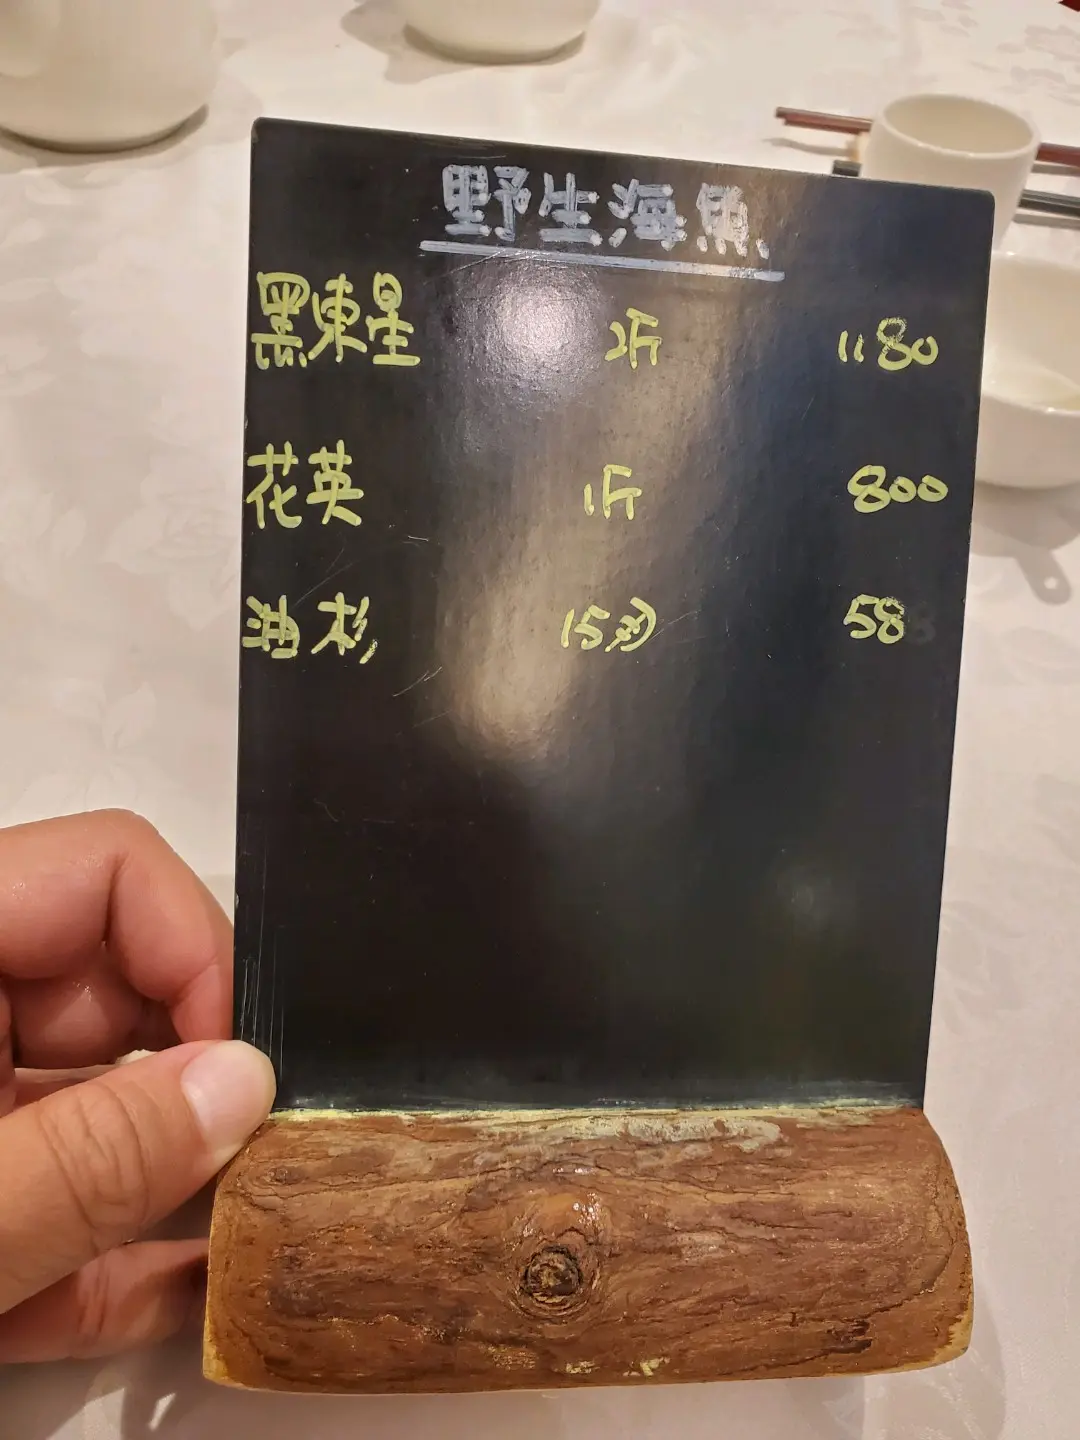 野生海魚
黑東星 2斤 1180
花英 1斤 800
油杉 15両 58